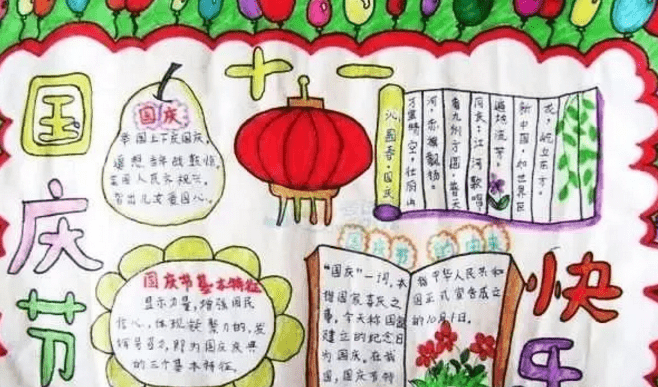 国庆节
十一
国庆
举国上下庆国庆，
遥想当年战
全国人民齐祝
儿女爱国心。
沁园春·国庆
万里晴空，壮丽山
河，赤旗飘扬。
看九州方圆，普天
同庆；江河歌唱
遍地流芳。
新中国，如世界巨
屹立东方。
国庆节基本特征
显示力量，增强国民
信心，体现凝聚力的，发
挥号召力，即为国庆庆典
的三个基本特征。
国庆节的由来
“国庆”一词，本
指国家喜庆之
事。今天称国家
建立的纪念日
为国庆。在我
国，国庆节特
指中华人民共和
国正式宣告成立
的10月1日。
快乐